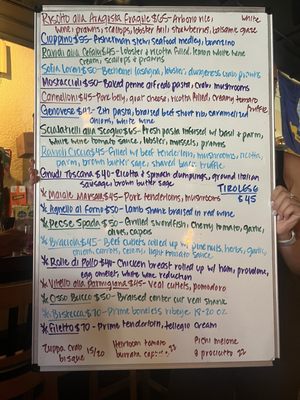 Risotto alla Aragosta Fragile $65 - Arborio rice, white
wine, prawns, scallops, lobster tail, strawberries, balsamic glaze
Cioppino $65 - Fisherman stew, seafood medley, bronzino
Ravioli alla Cefalu $45 - Lobster & ricotta filled, lemon white wine
cream, scallops & prawns
Sofia Loren $50 - Bechamel lasagna, lobster, dungeness crab, prawns
Mostaccioli $50 - Baked penne alfredo pasta, crab, mushrooms
Cannelloni $45 - Pork belly, goat cheese, ricotta filled, creamy tomato
Genovese $42 - Ziti pasta, braised beef short rib, caramelized
onions, white wine
Scialatielli alla Scoglio $65 - Fresh pasta infused w/ basil & parm,
white wine tomato sauce, lobster, mussels, prawns
Ravioli Ciccio $45 - Filled w/ beef tenderloin, mushrooms, ricotta,
parm, brown butter sage, shaved black truffle
Gnudi Toscana $40 - Ricotta & spinach dumplings, ground italian
sausage, brown butter sage
TIROLESE
$45
* Maiale Marsala $45 - Pork tenderloins, mushrooms
* Agnello al Forno $50 - Lamb shank braised in red wine
* Pesce Spada $50 - Grilled swordfish, cherry tomato, garlic,
olives, capers
* Braciola $45 - Beef cutlets rolled up w/ pine nuts, herbs, garlic,
onions, carrots, celery, light tomato sauce
* Rolle di Pollo $40 - Chicken breast rolled up w/ ham, provolone,
egg omelet, white wine reduction
* Vitello alla Parmigiana $45 - Veal cutlets, pomodoro
* Osso Bucco $50 - Braised center cut veal shank
* Bistecca $70 - Prime boneless ribeye 18-20 oz
* Filetto $70 - Prime tenderloin, tallegio cream
Zuppa Crab 15/20
bisque
Heirloom tomato
burrata caprese 22
Pichi melone
& prociutto 22